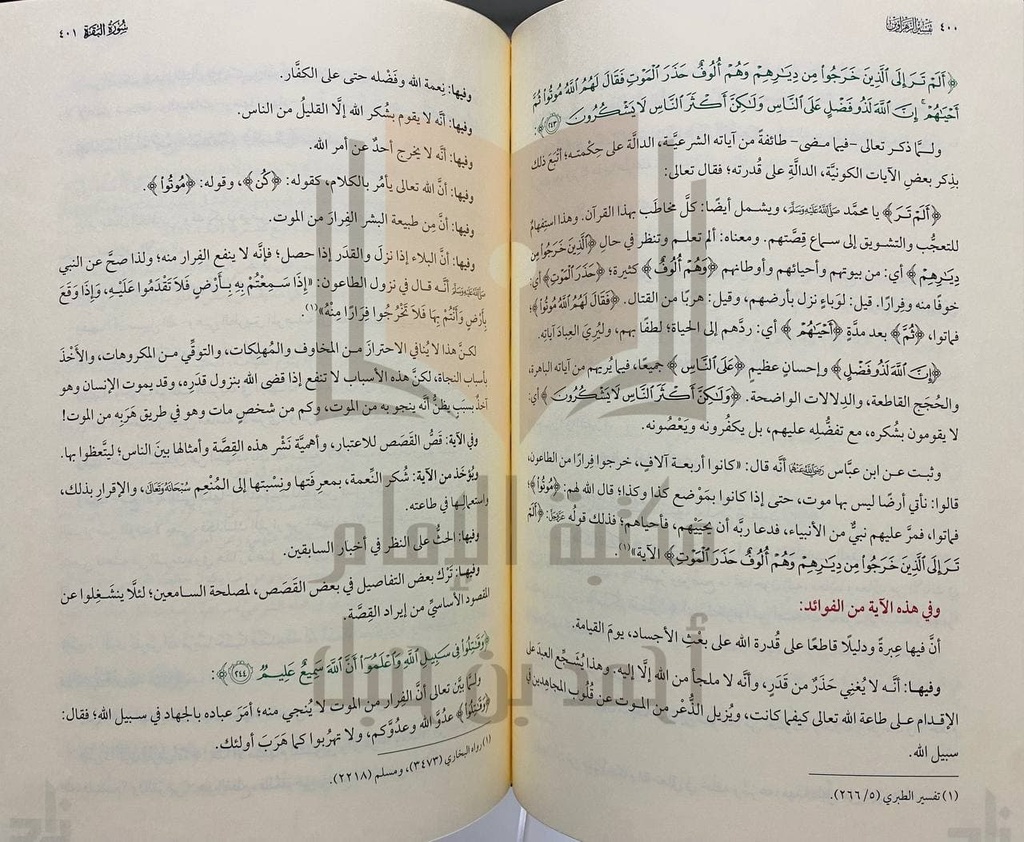 ٤٠٠ تفسير الزهراوين
﴿أَلَمْ تَرَ إِلَى الَّذِينَ خَرَجُوا مِن دِيَارِهِمْ وَهُمْ أُلُوفٌ حَذَرَ الْمَوْتِ فَقَالَ لَهُمُ اللَّهُ مُوتُوا ثُمَّ
أَحْيَاهُمْ ۚ إِنَّ اللَّهَ لَذُو فَضْلٍ عَلَى النَّاسِ وَلَٰكِنَّ أَكْثَرَ النَّاسِ لَا يَشْكُرُونَ ﴿٢٤٣﴾﴾:
ولـمَّا ذكر تعالى -فيما مضى- طائفةً من آياته الشرعيَّة، الدالة على حِكْمته؛ أَتْبَعَ ذلك
بذِكر بعضِ الآيات الكونيَّة، الدالَّةِ على قُدرته؛ فقال تعالى:
﴿أَلَمْ تَرَ﴾ يا محمَّد صَلَّى اللَّهُ عَلَيْهِ وَسَلَّمَ، ويشمل أيضًا: كلَّ مخاطَب بهذا القرآن. وهذا استفهامٌ
للتعجُّب والتشويق إلى سماع قِصَّتهم. ومعناه: ألم تعلم وتنظر في حالِ ﴿الَّذِينَ خَرَجُوا مِن
دِيَارِهِمْ﴾ أي: من بيوتهم وأحيائهم وأوطانهم ﴿وَهُمْ أُلُوفٌ﴾ كثيرة؛ ﴿حَذَرَ الْمَوْتِ﴾ أي:
خوفًا منه وفِرارًا. قيل: لوَباءٍ نزل بأرضهم، وقيل: هربًا من القتال. ﴿فَقَالَ لَهُمُ اللَّهُ مُوتُوا﴾؛
فماتوا، ﴿ثُمَّ﴾ بعد مدَّةٍ ﴿أَحْيَاهُمْ﴾ أي: ردَّهم إلى الحياة؛ لطفًا بهم، وليُرِيَ العبادَ آياتِه.
﴿إِنَّ اللَّهَ لَذُو فَضْلٍ﴾ وإحسانٍ عظيمٍ ﴿عَلَى النَّاسِ﴾ جميعًا، فيما يُريهم من آياته الباهرة،
والحُجَج القاطعة، والدِلالات الواضحة. ﴿وَلَٰكِنَّ أَكْثَرَ النَّاسِ لَا يَشْكُرُونَ﴾ أي:
لا يقومون بشُكره، مع تفضُّلِه عليهم، بل يكفُرونه ويَعْصُونه.
وثبت عن ابن عبَّاس رَضِيَ اللَّهُ عَنْهُ أنَّه قال: «كانوا أربعة آلافٍ، خرجوا فِرارًا من الطاعون،
قالوا: نأتي أرضًا ليس بها موت، حتى إذا كانوا بمَوْضع كذا وكذا؛ قال الله لهم: ﴿مُوتُوا﴾؛
فماتوا، فمرَّ عليهم نبيٌّ من الأنبياء، فدعا ربَّه أن يحييَهم، فأحياهم؛ فذلك قولُه عَزَّ وَجَلَّ: ﴿أَلَمْ
تَرَ إِلَى الَّذِينَ خَرَجُوا مِن دِيَارِهِمْ وَهُمْ أُلُوفٌ حَذَرَ الْمَوْتِ﴾ الآية»(١).
وفي هذه الآية من الفوائد:
أنَّ فيها عِبرةً ودليلًا قاطعًا على قُدرة الله على بعْثِ الأجساد، يومَ القيامة.
وفيها: أنَّه لا يُغني حَذَرٌ من قَدَرٍ، وأنَّه لا ملجأ من الله إلَّا إليه. وهذا يُشجِّع العبدَ على
الإقدام على طاعة الله تعالى كيفما كانت، ويُزيل الذُّعْر من الموت عن قُلوب المجاهدين في
سبيل الله.
(١) تفسير الطبري (٥/ ٢٦٦).
سُورَةُ البَقَرَةِ ٤٠١
وفيها: نِعمة الله وفَضْله حتى على الكفَّار.
وفيها: أنَّه لا يقوم بشُكر الله إلَّا القليلُ من الناس.
وفيها: أنَّه لا يخرج أحدٌ عن أمر الله.
وفيها: أنَّ الله تعالى يأمُر بالكلام، كقوله: ﴿كُن﴾، وقوله: ﴿مُوتُوا﴾.
وفيها: أنَّ مِن طبيعة البشر الفِرارَ من الموت.
وفيها: أنَّ البلاء إذا نزل والقدَر إذا حصل؛ فإنَّه لا ينفع الفِرار منه؛ ولذا صحَّ عن النبي
صَلَّى اللَّهُ عَلَيْهِ وَسَلَّمَ أنَّه قال في نزول الطاعون: «إِذَا سَمِعْتُمْ بِهِ بِأَرْضٍ فَلَا تَقْدَمُوا عَلَيْهِ، وَإِذَا وَقَعَ
بِأَرْضٍ وَأَنْتُمْ بِهَا فَلَا تَخْرُجُوا فِرَارًا مِنْهُ»(١).
لكنَّ هذا لا يُنافي الاحترازَ من المخاوف والمُهلِكات، والتوقِّي من المكروهات، والأخْذَ
بأسباب النجاة، لكنَّ هذه الأسباب لا تنفع إذا قضى الله بنزول قدَرِه، وقد يموت الإنسان وهو
آخذٌ بسببٍ يظنُّ أنَّه ينجو به من الموت، وكم من شخصٍ مات وهو في طريق هَرَبِه من الموت!
وفي الآية: قصُّ القَصَص للاعتبار، وأهميَّة نَشْر هذه القِصَّة وأمثالها بينَ الناس؛ ليتَّعظوا بها.
ويُؤخَذ من الآية: شُكر النِّعمة، بمعرفتها ونِسْبتها إلى المُنْعِم سُبْحَانَهُ وَتَعَالَى، والإقرار بذلك،
واستعمالها في طاعته.
وفيها: الحثُّ على النظر في أخبار السابقين.
وفيها: تَرْك بعض التفاصيل في بعض القَصَص، لمصلحة السامعين؛ لئلَّا ينشَغِلوا عن
المقصود الأساسيِّ من إيراد القِصَّة.
﴿وَقَاتِلُوا فِي سَبِيلِ اللَّهِ وَاعْلَمُوا أَنَّ اللَّهَ سَمِيعٌ عَلِيمٌ ﴿٢٤٤﴾﴾:
ولـمَّا بيَّن تعالى أنَّ الفِرار من الموت لا يُنجي منه؛ أمرَ عباده بالجهاد في سبيل الله؛ فقال:
﴿وَقَاتِلُوا﴾ عدُوَّ الله وعدُوَّكم، ولا تهرُبوا كما هَرَبَ أولئك.
(١) رواه البخاري (٣٤٧٣)، ومسلم (٢٢١٨).
مكتبة الإمام
أحمد بن حنبل